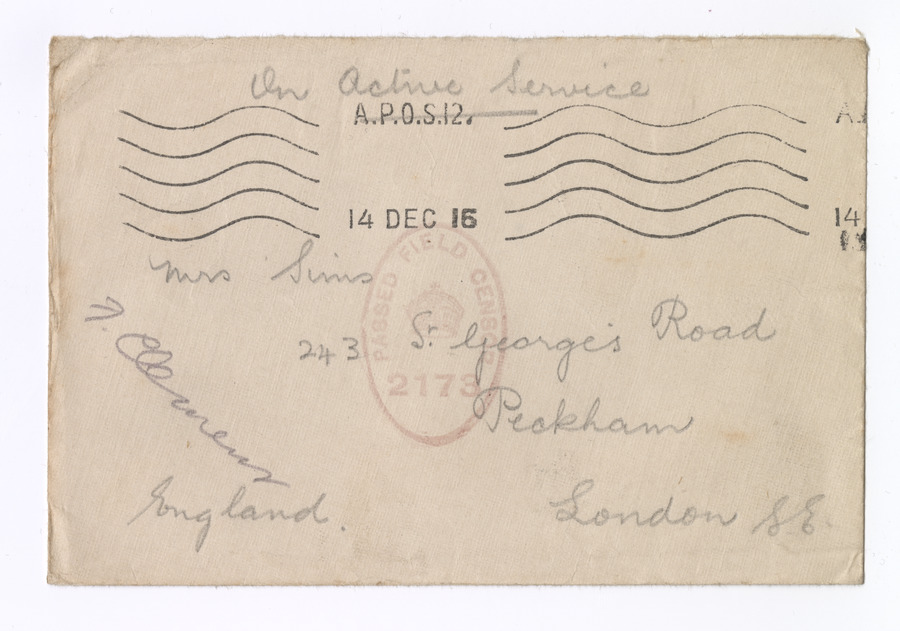 On Active Service
A.P.O.S.12.
14 DEC 16
A.
14
PASSED FIELD CENSOR
2173
Mrs Sims
243 St. George's Road
Peckham
London S.E.
England.